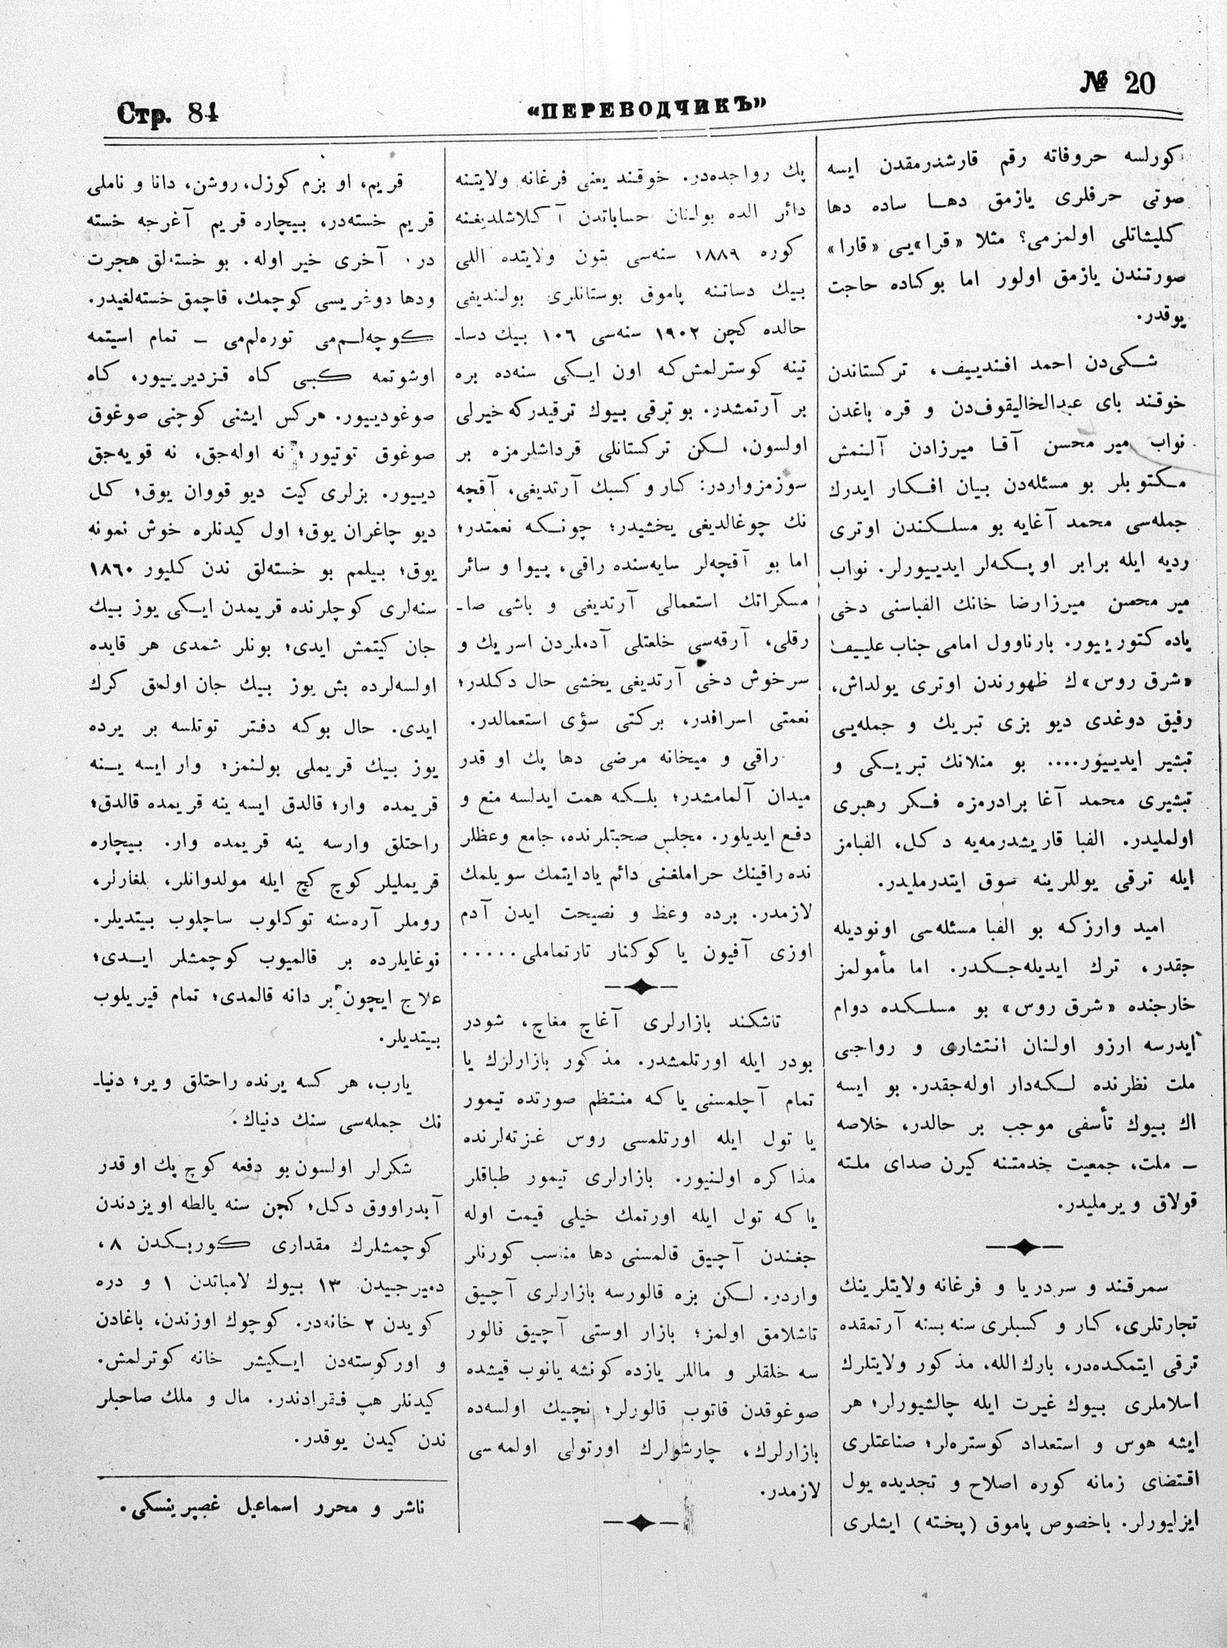 Стр. 84
«ПЕРЕВОДЧИКЪ»
№ 20
كورلسه حروفاته رقم قارشدرمقدن ايسه
صوتى حرفلرى يازمق دهـا ساده دها
كليشاتلى اولمزمى؟ مثلا «قرا»يى «قارا»
صورتندن يازمق اولور اما بوكاده حاجت
يوقدر.
شكىدن احمد افندييف، تركستاندن
خوقند باى عبدالخاليقوفدن و قره باغدن
نواب مير محسن آقا ميرزادن آلنمش
مكتوبلر بو مسئلهدن بيان افكار ايدرك
جملهسى محمد آغايه بو مسلكندن اوترى
رديه ايله برابر اوپكهلر ايدييورلر. نواب
مير محسن ميرزارضا خانك الفباسنى دخى
ياده كتورييور. بارناوول امامى جناب علييف
«شرق روس»ك ظهورندن اوترى يولداش،
رفيق دوغدى ديو بزى تبريك و جملهيى
تبشير ايدييور.... بو منلانك تبريكى و
تبشيرى محمد آغا برادرمزه فكر رهبرى
اولمليدر. الفبا قاريشدرمهيه دكل، الفبامز
ايله ترقى يوللرينه سوق ايتدرمليدر.
اميد وارزكه بو الفبا مسئلهسى اونوديله
جقدر، ترك ايديلهجكدر. اما مأمولمز
خارجنده «شرق روس» بو مسلكده دوام
ايدرسه ارزو اولنان انتشارى و رواجى
ملت نظرنده لكهدار اولهجقدر. بو ايسه
اك بيوك تأسفى موجب بر حالدر، خلاصه
ـ ملت، جمعيت خدمتنه كيرن صداى ملته
قولاق ويرمليدر.
سمرقند و سردريا و فرغانه ولايتلرينك
تجارتلرى، كار و كسبلرى سنه بسنه آرتمقده
ترقى ايتمكدهدر، بارك الله، مذكور ولايتلرك
اسلاملرى بيوك غيرت ايله چالشيورلر؛ هر
ايشه هوس و استعداد كوسترهلر؛ صناعتلرى
اقتضاى زمانه كوره اصلاح و تجديده يول
ايزليورلر. باخصوص پاموق (پخته) ايشلرى
پك رواجدهدر. خوقند يعنى فرغانه ولايتنه
دائر الده بولنان حساباتدن آكلاشلديغنه
كوره ١٨٨٩ سنهسى بتون ولايتده اللى
بيك دساتنه پاموق بوستانلرى بولنديغى
حالده كچن ١٩٠٢ سنهسى ١٠٦ بيك دساـ
تينه كوسترلمشكه اون ايكى سنهده بره
بر آرتمشدر. بو ترقى بيوك ترقيدركه خيرلى
اولسون، لكن تركستانلى قرداشلرمزه بر
سوزمز واردر: كار و كسبك آرتديغى، آقچه
نك چوغالديغى يخشيدر؛ چونكه نعمتدر؛
اما بو آقچهلر سايهسنده راقى، پيوا و سائر
مسكراتك استعمالى آرتديغى و باشى صاـ
رقلى، آرقهسى خلعتلى آدملردن اسريك و
سرخوش دخى آرتديغى يخشى حال دكلدر؛
نعمتى اسرافدر، بركتى سؤى استعمالدر.
راقى و ميخانه مرضى دها پك او قدر
ميدان آلمامشدر؛ بلكه همت ايدلسه منع و
دفع ايديلور. مجلس صحبتلرنده، جامع وعظلر
نده راقينك حراملغنى دائم ياد ايتمك سويلمك
لازمدر. برده وعظ و نصيحت ايدن آدم
اوزى آفيون يا كوكنار تارتماملى.....
تاشكند بازارلرى آغاچ مغاچ، شودر
بودر ايله اورتلمشدر. مذكور بازارلرك يا
تمام آچلمسنى ياكه منتظم صورتده تيمور
يا تول ايله اورتلمسى روس غزتهلرنده
مذاكره اولنيور. بازارلرى تيمور طباقلر
ياكه تول ايله اورتمك خيلى قيمت اوله
جغندن آچيق قالمسنى دها مناسب كورنلر
واردر. لكن بزه قالورسه بازارلرى آچيق
تاشلامق اولمز؛ بازار اوستى آچيق قالور
سه خلقلر و ماللر يازده كونشه يانوب قيشده
صوغوقدن قاتوب قالورلر؛ نچيك اولسهده
بازارلرك، چارشولرك اورتولى اولمهسى
لازمدر.
قريم، او بزم كوزل، روشن، دانا و ناملى
قريم خستهدر، بيچاره قريم آغرجه خسته
در. آخرى خير اوله. بو خستهلق هجرت
ودها دوغريسى كوچمك، قاچمق خستهلغيدر.
كوچهلممى تورهلممى ـ تمام اسيتمه
اوشوتمه كبى كاه قزديرييور، كاه
صوغودييور. هركس ايشنى كوچنى صوغوق
صوغوق توتيور؛ نه اولهجق، نه قويهجق
دييور. بزلرى كيت ديو قووان يوق؛ كل
ديو چاغران يوق؛ اول كيدنلره خوش نمونه
يوق؛ بيلمم بو خستهلق ندن كليور ١٨٦٠
سنهلرى كوچلرنده قريمدن ايكى يوز بيك
جان كيتمش ايدى؛ بونلر شمدى هر قايده
اولسهلرده بش يوز بيك جان اولمق كرك
ايدى. حال بوكه دفتر توتلسه بر يرده
يوز بيك قريملى بولنمز؛ وار ايسه ينه
قريمده وار؛ قالدق ايسه ينه قريمده قالدق؛
راحتلق وارسه ينه قريمده وار. بيچاره
قريمليلر كوچ كچ ايله مولدوانلر، بلغارلر،
روملر آرهسنه توكلوب ساچلوب بيتديلر.
نوغايلرده بر قالميوب كوچمشلر ايدى؛
علاج ايچون بر دانه قالمدى؛ تمام قيريلوب
بيتديلر.
يارب، هر كسه يرنده راحتلق وير؛ دنياـ
نك جملهسى سنك دنياك.
شكرلر اولسون بو دفعه كوچ پك او قدر
آيدراووق دكل؛ كچن سنه يالطه اويزدندن
كوچمشلرك مقدارى كوربكدن ٨،
دميرجيدن ١٣ بيوك لامباتدن ١ و دره
كويدن ٢ خانهدر. كوچوك اوزندن، باغادن
و اوركوستهدن ايكيشر خانه كوترلمش.
كيدنلر هپ فقرادندر. مال و ملك صاحبلر
ندن كيدن يوقدر.
ناشر و محرر اسماعيل غصپرينسكى.